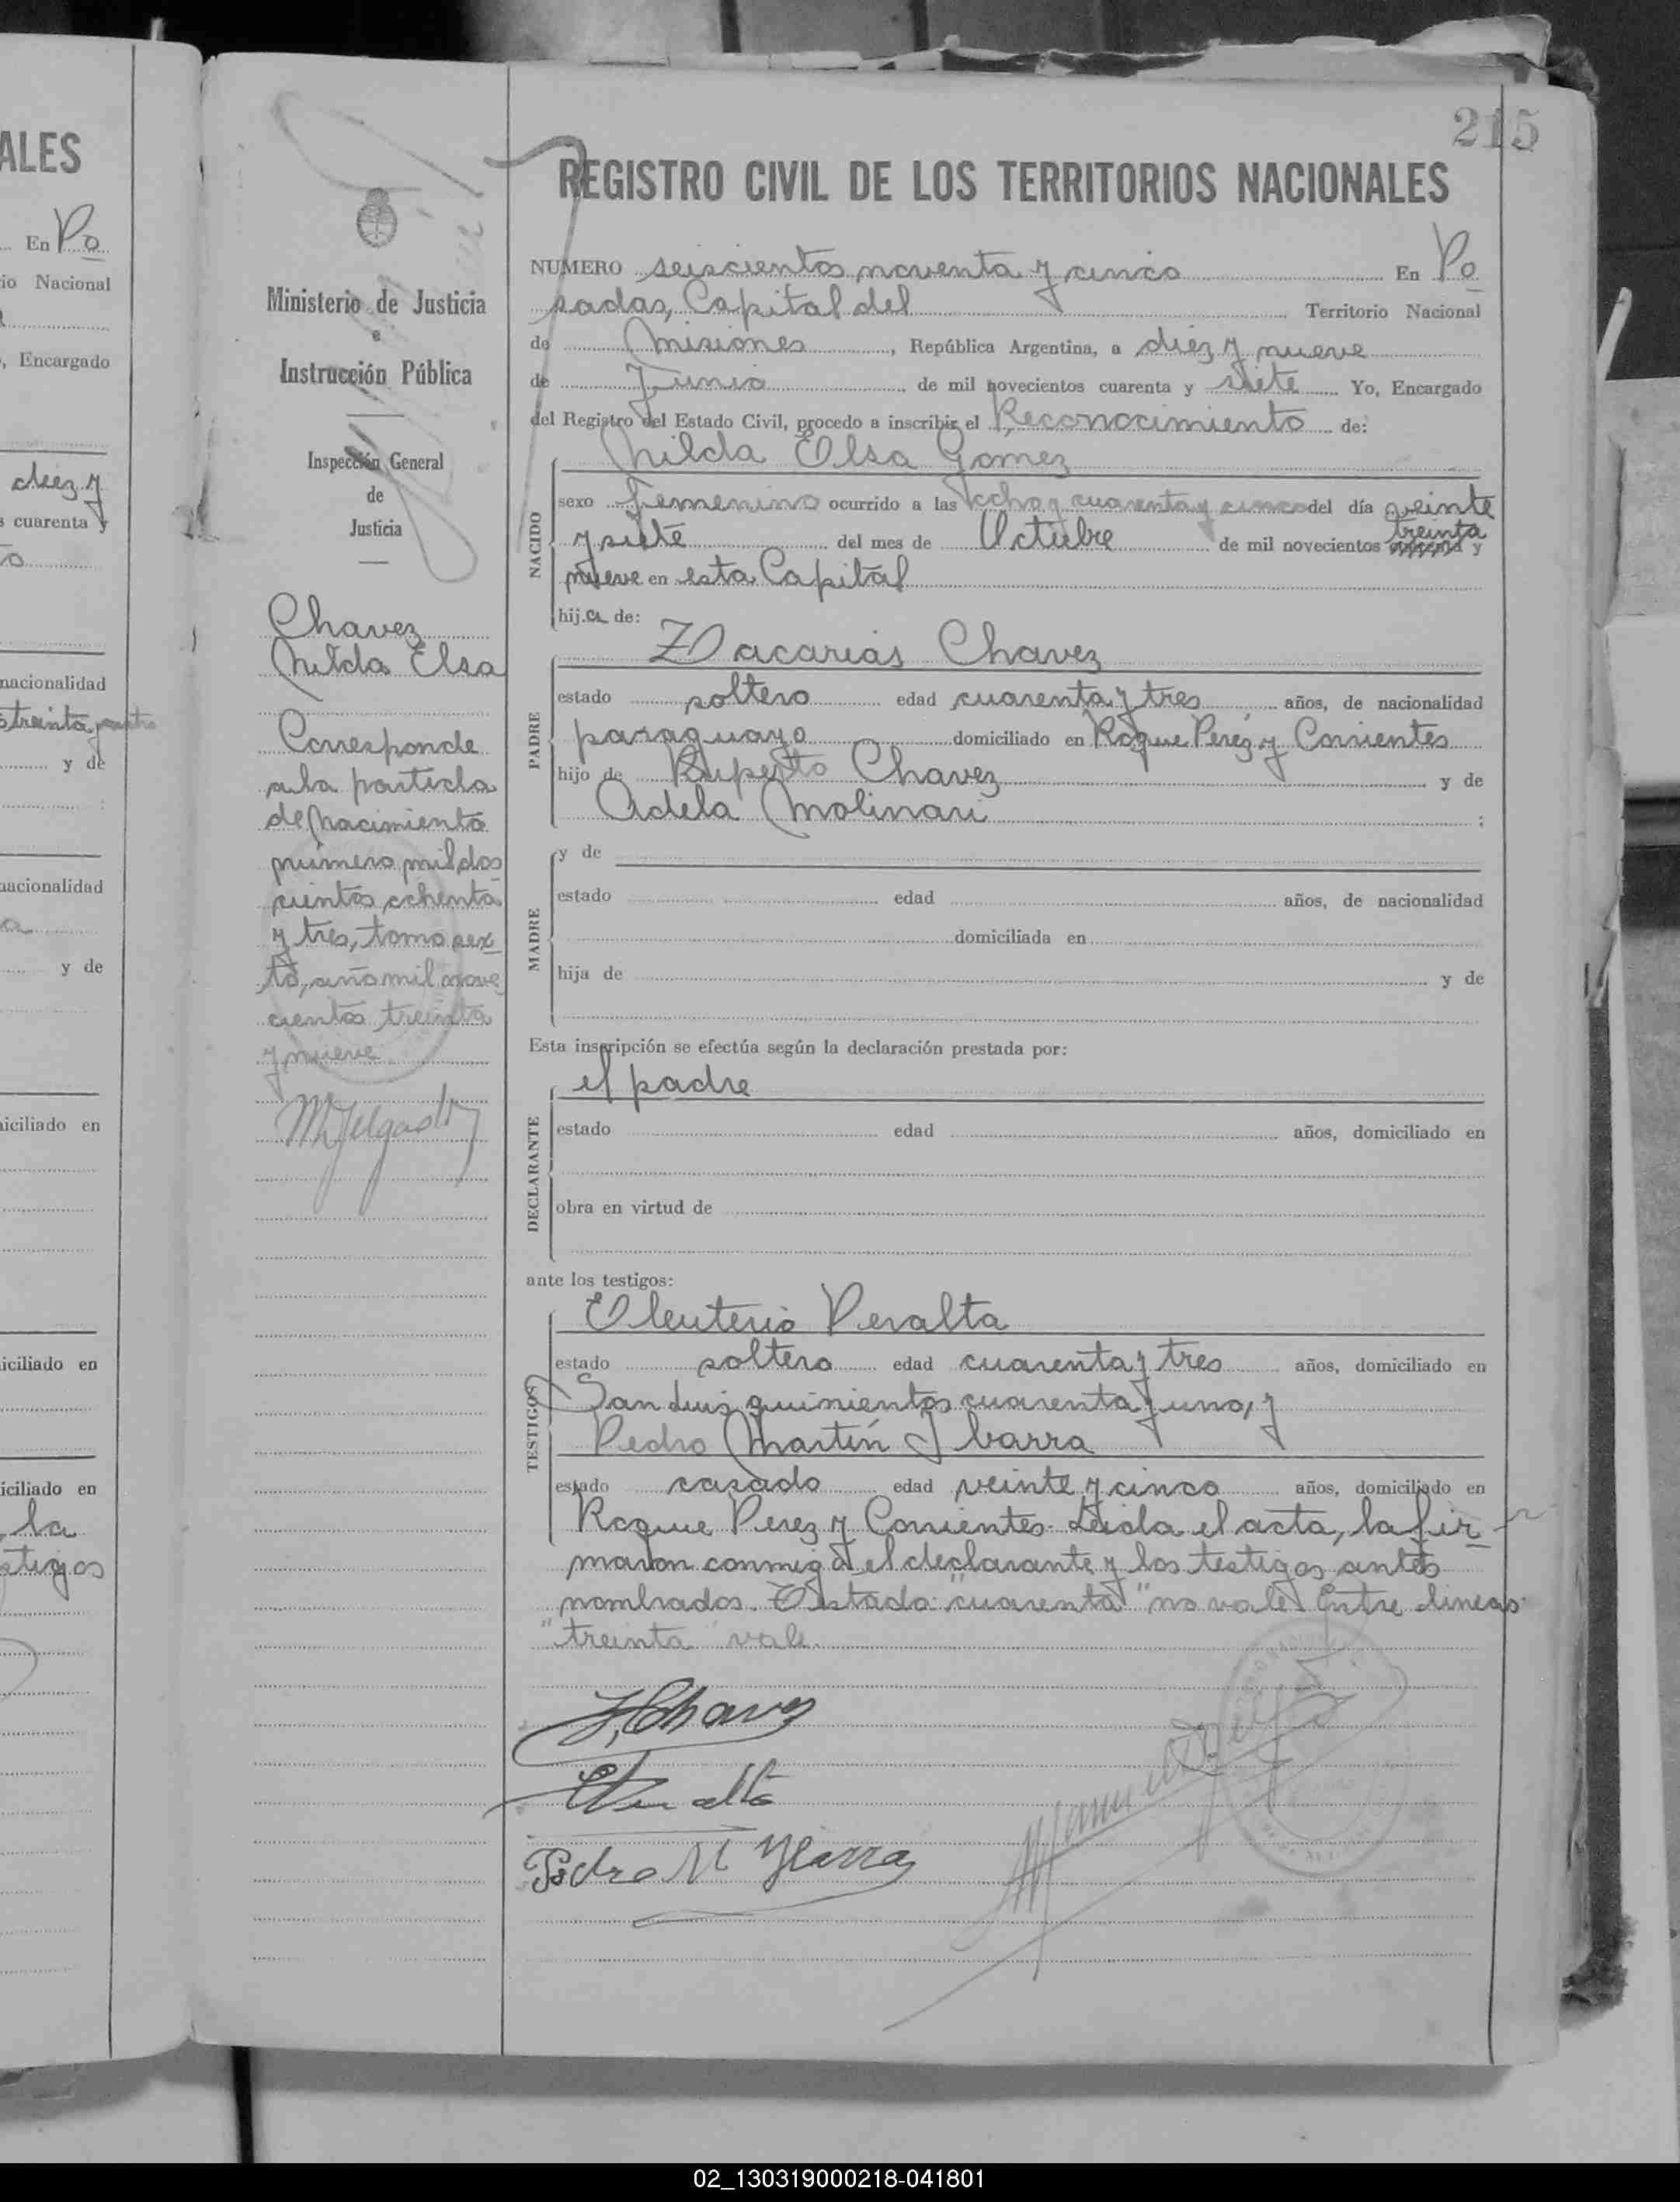 ALES
En Po
io Nacional
, Encargado
diez y
s cuarenta y
to
nacionalidad
treinta
y de
nacionalidad
a
y de
niciliado en
iciliado en
iciliado en
, la
stigos
215
Ministerio de Justicia
e
Instrucción Pública
Inspección General
de
Justicia
Chavez
Nilda Elsa
Corresponde
a la partida
de Nacimiento
número mil dos
cientos ochenta
y tres, tomo sex
to, año mil nove
cientos treinta
y nueve
REGISTRO CIVIL DE LOS TERRITORIOS NACIONALES
NUMERO seiscientos noventa y cinco En Po
sadas, Capital del Territorio Nacional
de Misiones, República Argentina, a diez y nueve
de Junio de mil novecientos cuarenta y siete Yo, Encargado
del Registro del Estado Civil, procedo a inscribir el Reconocimiento de:
Nilda Elsa Gomez
NACIDO
sexo femenino ocurrido a las ocho y cuarenta y cinco del día veinte
treinta
y siete del mes de Octubre de mil novecientos cuarenta y
nueve en esta Capital
hija de:
PADRE
Zacarias Chavez
estado soltero edad cuarenta y tres años, de nacionalidad
paraguayo domiciliado en Roque Perez y Corrientes
hijo de Ruperto Chavez y de
Adela Molinari ;
MADRE
y de
estado edad años, de nacionalidad
domiciliada en
hija de y de
Esta inscripción se efectúa según la declaración prestada por:
DECLARANTE
el padre
estado edad años, domiciliado en
obra en virtud de
ante los testigos:
TESTIGOS
Eleuterio Peralta
estado soltero edad cuarenta y tres años, domiciliado en
San Luis quinientos cuarenta y uno, y
Pedro Martín Ibarra
estado casado edad veinte y cinco años, domiciliado en
Roque Perez y Corrientes. Leida el acta, la fir
maron conmigo el declarante y los testigos antes
nombrados. Testado: "cuarenta" no vale. Entre lineas:
"treinta" vale.
Z, Chavez
E Peralta
Pedro M Ybarra
02_130319000218-041801